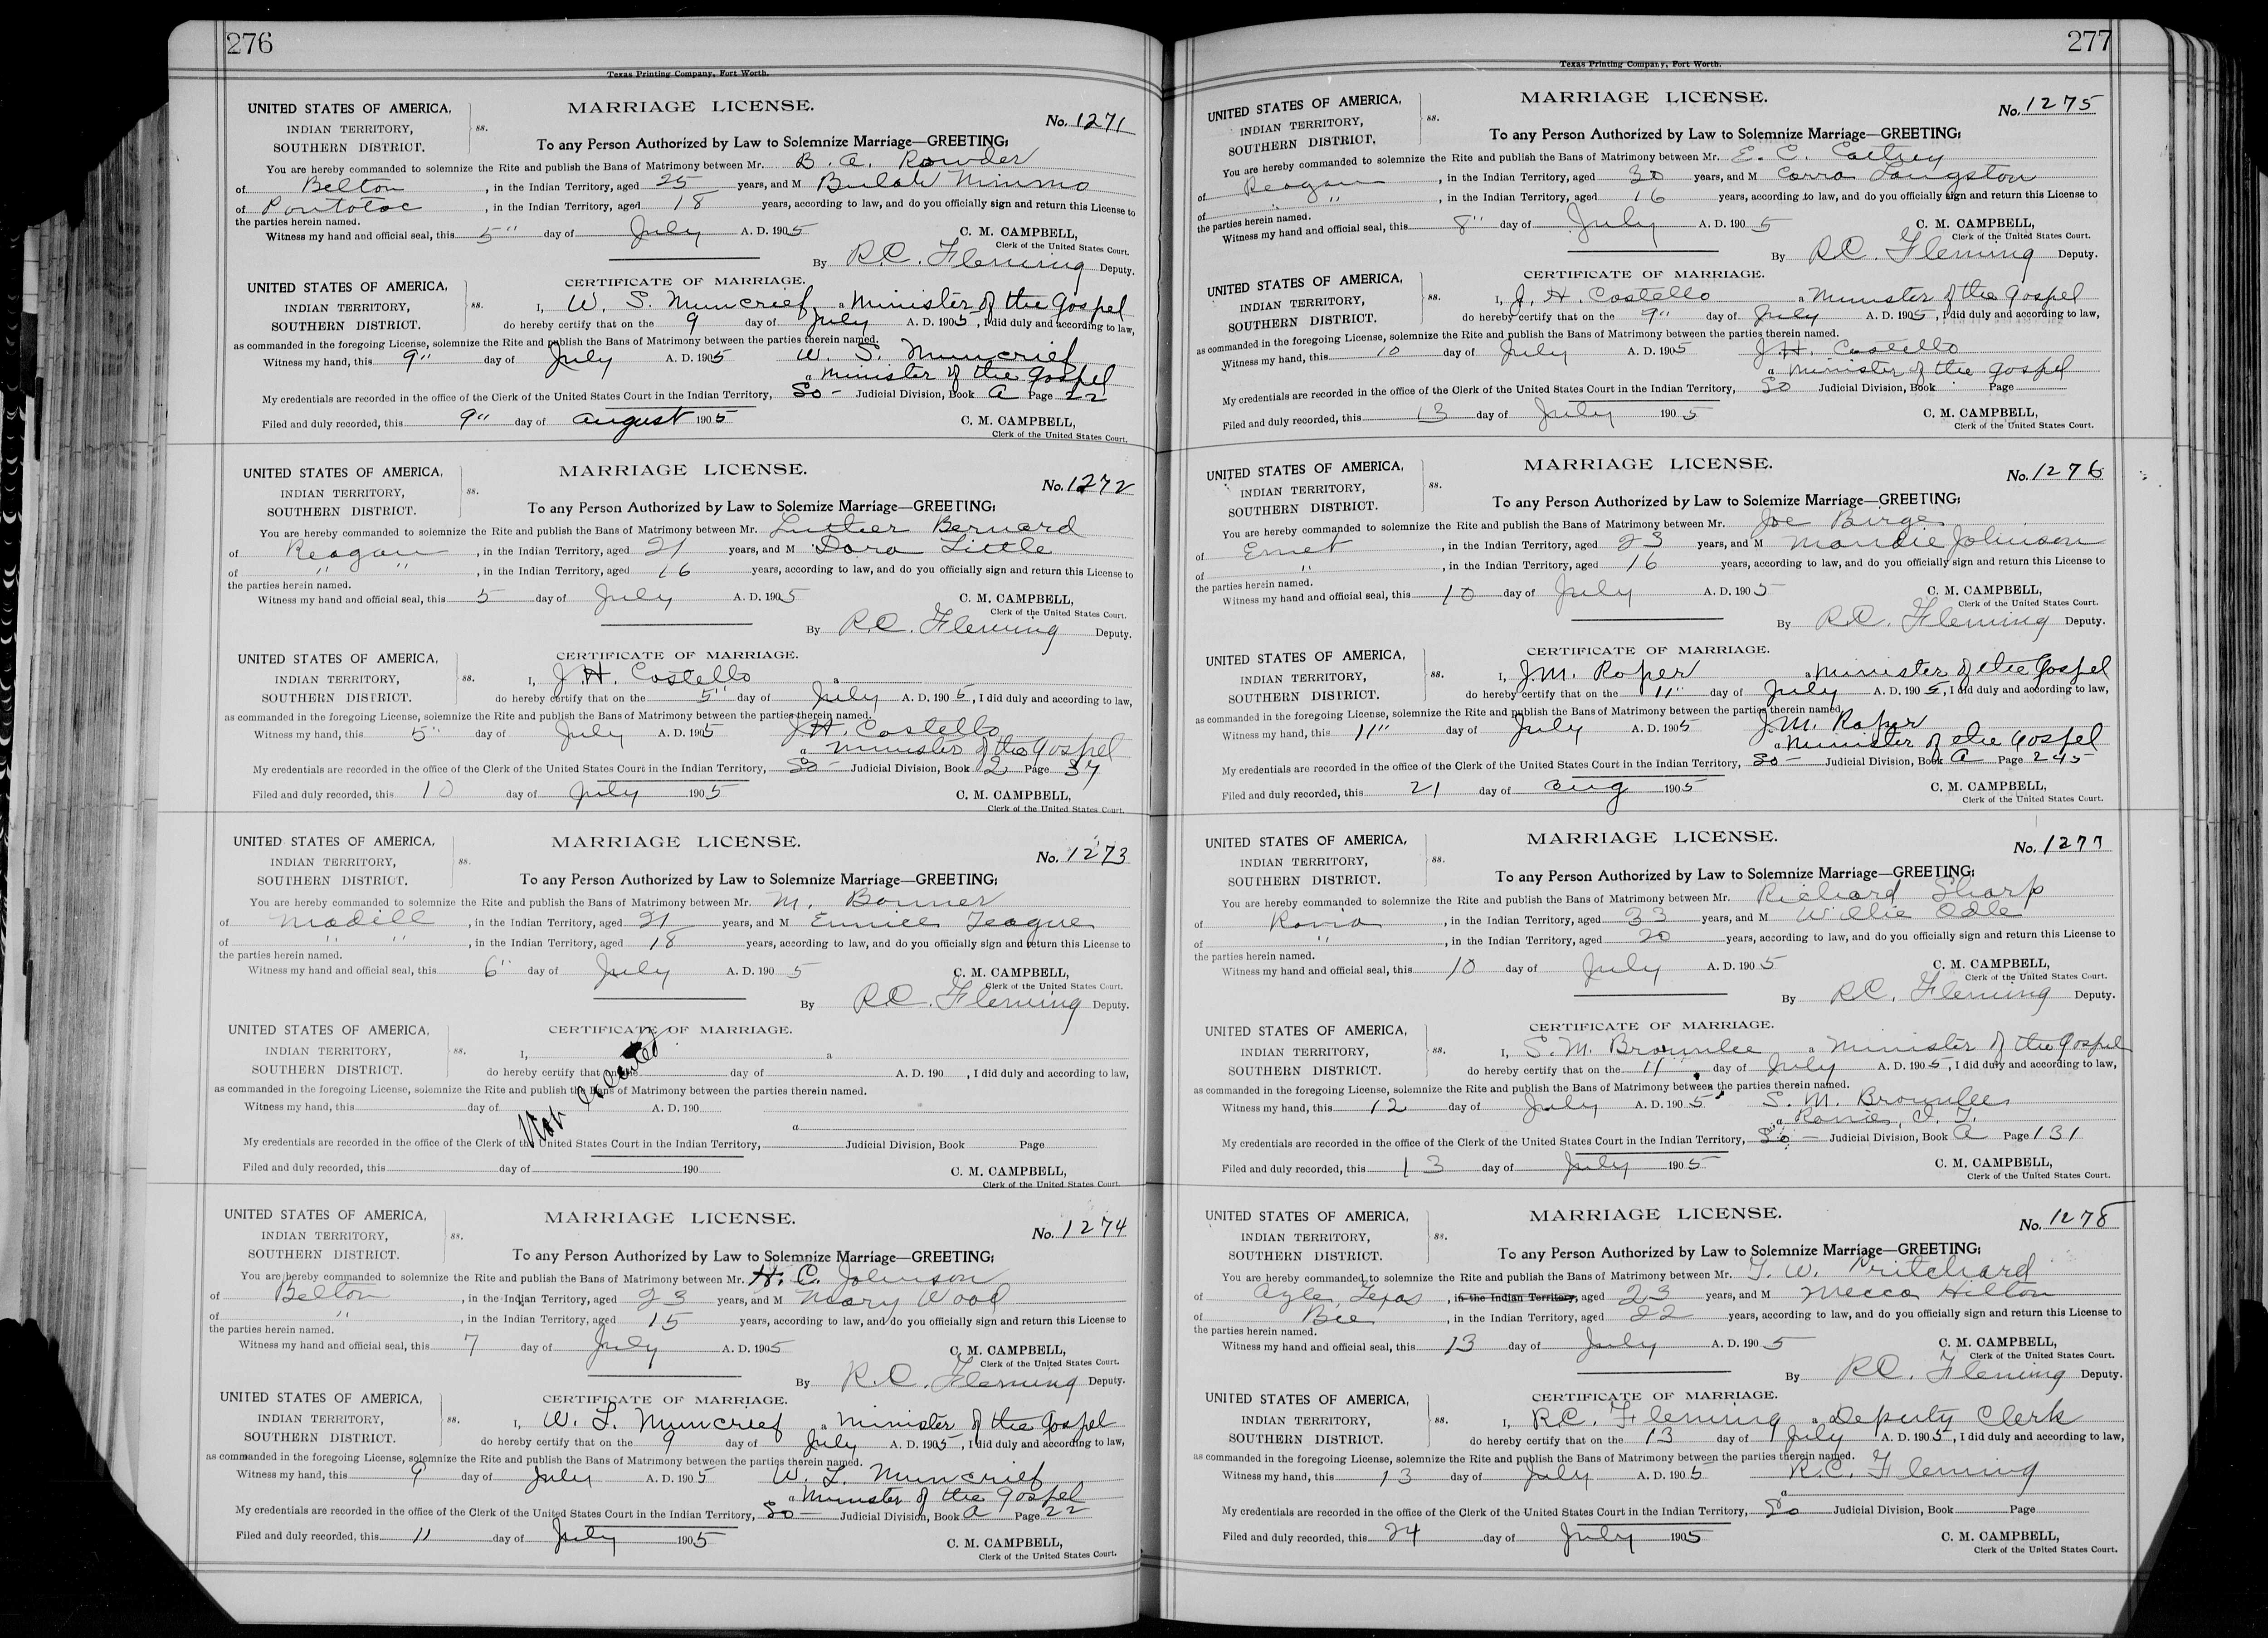 276
Texas Printing Company, Fort Worth.
UNITED STATES OF AMERICA,
INDIAN TERRITORY,
SOUTHERN DISTRICT.
ss.
MARRIAGE LICENSE.
No. 1271
To any Person Authorized by Law to Solemnize Marriage—GREETING:
You are hereby commanded to solemnize the Rite and publish the Bans of Matrimony between Mr. B. A. Rowder
of Belton, in the Indian Territory, aged 25 years, and M Bulah Nimmo
of Pontotoc, in the Indian Territory, aged 18 years, according to law, and do you officially sign and return this License to
the parties herein named.
Witness my hand and official seal, this 5" day of July A. D. 1905
C. M. CAMPBELL,
Clerk of the United States Court.
By R.C. Fleming Deputy.
CERTIFICATE OF MARRIAGE.
UNITED STATES OF AMERICA,
INDIAN TERRITORY,
SOUTHERN DISTRICT.
ss.
I, W. S. Muncrief a Minister of the Gospel
do hereby certify that on the 9 day of July A. D. 1905, I did duly and according to law,
as commanded in the foregoing License, solemnize the Rite and publish the Bans of Matrimony between the parties therein named.
Witness my hand, this 9" day of July A. D. 1905 W. S. Muncrief
a Minister of the Gospel
My credentials are recorded in the office of the Clerk of the United States Court in the Indian Territory, So - Judicial Division, Book A Page 22
Filed and duly recorded, this 9" day of August 1905
C. M. CAMPBELL,
Clerk of the United States Court.
UNITED STATES OF AMERICA,
INDIAN TERRITORY,
SOUTHERN DISTRICT.
ss.
MARRIAGE LICENSE.
No. 1272
To any Person Authorized by Law to Solemize Marriage—GREETING:
You are hereby commanded to solemnize the Rite and publish the Bans of Matrimony between Mr. Luther Bernard
of Reagan, in the Indian Territory, aged 21 years, and M Dora Little
of " ", in the Indian Territory, aged 16 years, according to law, and do you officially sign and return this License to
the parties herein named.
Witness my hand and official seal, this 5 day of July A. D. 1905
C. M. CAMPBELL,
Clerk of the United States Court.
By R.C. Fleming Deputy.
CERTIFICATE OF MARRIAGE.
UNITED STATES OF AMERICA,
INDIAN TERRITORY,
SOUTHERN DISTRICT.
ss.
I, J.H. Costello a
do hereby certify that on the 5" day of July A. D. 1905, I did duly and according to law,
as commanded in the foregoing License, solemnize the Rite and publish the Bans of Matrimony between the parties therein named.
Witness my hand, this 5" day of July A. D. 1905 J.H. Costello
a Minister of the Gospel
My credentials are recorded in the office of the Clerk of the United States Court in the Indian Territory, So - Judicial Division, Book 2 Page 37
Filed and duly recorded, this 10 day of July 1905
C. M. CAMPBELL,
Clerk of the United States Court.
UNITED STATES OF AMERICA,
INDIAN TERRITORY,
SOUTHERN DISTRICT.
ss.
MARRIAGE LICENSE.
No. 1273
To any Person Authorized by Law to Solemnize Marriage—GREETING:
You are hereby commanded to solemnize the Rite and publish the Bans of Matrimony between Mr. M. Bonner
of Madill, in the Indian Territory, aged 21 years, and M Eunice Teague
of " ", in the Indian Territory, aged 18 years, according to law, and do you officially sign and return this License to
the parties herein named.
Witness my hand and official seal, this 6" day of July A. D. 1905
C. M. CAMPBELL,
Clerk of the United States Court.
By R.C. Fleming Deputy.
CERTIFICATE OF MARRIAGE.
UNITED STATES OF AMERICA,
INDIAN TERRITORY,
SOUTHERN DISTRICT.
ss.
I, a
do hereby certify that on the day of A. D. 190 , I did duly and according to law,
as commanded in the foregoing License, solemnize the Rite and publish the Bans of Matrimony between the parties therein named.
Witness my hand, this day of A. D. 190
a
Not Executed
My credentials are recorded in the office of the Clerk of the United States Court in the Indian Territory, Judicial Division, Book Page
Filed and duly recorded, this day of 190
C. M. CAMPBELL,
Clerk of the United States Court.
UNITED STATES OF AMERICA,
INDIAN TERRITORY,
SOUTHERN DISTRICT.
ss.
MARRIAGE LICENSE.
No. 1274
To any Person Authorized by Law to Solemnize Marriage—GREETING:
You are hereby commanded to solemnize the Rite and publish the Bans of Matrimony between Mr. H. C. Johnson
of Belton, in the Indian Territory, aged 23 years, and M Mary Wood
of ", in the Indian Territory, aged 15 years, according to law, and do you officially sign and return this License to
the parties herein named.
Witness my hand and official seal, this 7 day of July A. D. 1905
C. M. CAMPBELL,
Clerk of the United States Court.
By R.C. Fleming Deputy.
CERTIFICATE OF MARRIAGE.
UNITED STATES OF AMERICA,
INDIAN TERRITORY,
SOUTHERN DISTRICT.
ss.
I, W. L. Muncrief a Minister of the Gospel
do hereby certify that on the 9 day of July A. D. 1905, I did duly and according to law,
as commanded in the foregoing License, solemnize the Rite and publish the Bans of Matrimony between the parties therein named.
Witness my hand, this 9 day of July A. D. 1905 W. L. Muncrief
a Minister of the Gospel
My credentials are recorded in the office of the Clerk of the United States Court in the Indian Territory, So - Judicial Division, Book A Page 22
Filed and duly recorded, this 11 day of July 1905
C. M. CAMPBELL,
Clerk of the United States Court.
277
Texas Printing Company, Fort Worth.
UNITED STATES OF AMERICA,
INDIAN TERRITORY,
SOUTHERN DISTRICT.
ss.
MARRIAGE LICENSE.
No. 1275
To any Person Authorized by Law to Solemnize Marriage—GREETING:
You are hereby commanded to solemnize the Rite and publish the Bans of Matrimony between Mr. E. C.
of Reagan, in the Indian Territory, aged 30 years, and M Corra Langston
of " ", in the Indian Territory, aged 16 years, according to law, and do you officially sign and return this License to
the parties herein named.
Witness my hand and official seal, this 8" day of July A. D. 1905
C. M. CAMPBELL,
Clerk of the United States Court.
By R.C. Fleming Deputy.
CERTIFICATE OF MARRIAGE.
UNITED STATES OF AMERICA,
INDIAN TERRITORY,
SOUTHERN DISTRICT.
ss.
I, J. H. Costello a Minister of the Gospel
do hereby certify that on the 9" day of July A. D. 1905, I did duly and according to law,
as commanded in the foregoing License, solemnize the Rite and publish the Bans of Matrimony between the parties therein named.
Witness my hand, this 10 day of July A. D. 1905 J.H. Costello
a Minister of the Gospel
My credentials are recorded in the office of the Clerk of the United States Court in the Indian Territory, So Judicial Division, Book Page
Filed and duly recorded, this 13 day of July 1905
C. M. CAMPBELL,
Clerk of the United States Court.
UNITED STATES OF AMERICA,
INDIAN TERRITORY,
SOUTHERN DISTRICT.
ss.
MARRIAGE LICENSE.
No. 1276
To any Person Authorized by Law to Solemnize Marriage—GREETING:
You are hereby commanded to solemnize the Rite and publish the Bans of Matrimony between Mr. Joe Burge
of Emet, in the Indian Territory, aged 23 years, and M Maudie Johnson
of ", in the Indian Territory, aged 16 years, according to law, and do you officially sign and return this License to
the parties herein named.
Witness my hand and official seal, this 10 day of July A. D. 1905
C. M. CAMPBELL,
Clerk of the United States Court.
By R.C. Fleming Deputy.
CERTIFICATE OF MARRIAGE.
UNITED STATES OF AMERICA,
INDIAN TERRITORY,
SOUTHERN DISTRICT.
ss.
I, J.M. Roper a Minister of the Gospel
do hereby certify that on the 11" day of July A. D. 1905, I did duly and according to law,
as commanded in the foregoing License, solemnize the Rite and publish the Bans of Matrimony between the parties therein named.
Witness my hand, this 11" day of July A. D. 1905 J.M. Roper
a Minister of the Gospel
My credentials are recorded in the office of the Clerk of the United States Court in the Indian Territory, So - Judicial Division, Book A Page 245
Filed and duly recorded, this 21 day of Aug 1905
C. M. CAMPBELL,
Clerk of the United States Court.
UNITED STATES OF AMERICA,
INDIAN TERRITORY,
SOUTHERN DISTRICT.
ss.
MARRIAGE LICENSE.
No. 1277
To any Person Authorized by Law to Solemnize Marriage—GREETING:
You are hereby commanded to solemnize the Rite and publish the Bans of Matrimony between Mr. Richard Sharp
of Ravia, in the Indian Territory, aged 33 years, and M Willie Odle
of ", in the Indian Territory, aged 20 years, according to law, and do you officially sign and return this License to
the parties herein named.
Witness my hand and official seal, this 10 day of July A. D. 1905
C. M. CAMPBELL,
Clerk of the United States Court.
By R.C. Fleming Deputy.
CERTIFICATE OF MARRIAGE.
UNITED STATES OF AMERICA,
INDIAN TERRITORY,
SOUTHERN DISTRICT.
ss.
I, S. M. Brownlee a Minister of the Gospel
do hereby certify that on the 11 day of July A. D. 1905, I did duly and according to law,
as commanded in the foregoing License, solemnize the Rite and publish the Bans of Matrimony between the parties therein named.
Witness my hand, this 12 day of July A. D. 1905 S. M. Brownlee
a Ravia, I. T.
My credentials are recorded in the office of the Clerk of the United States Court in the Indian Territory, So - Judicial Division, Book A Page 131
Filed and duly recorded, this 13 day of July 1905
C. M. CAMPBELL,
Clerk of the United States Court.
UNITED STATES OF AMERICA,
INDIAN TERRITORY,
SOUTHERN DISTRICT.
ss.
MARRIAGE LICENSE.
No. 1278
To any Person Authorized by Law to Solemnize Marriage—GREETING:
You are hereby commanded to solemnize the Rite and publish the Bans of Matrimony between Mr. T. W. Pritchard
of Azle, Texas, in the Indian Territory, aged 23 years, and M Mecca Hilton
of Bee, in the Indian Territory, aged 22 years, according to law, and do you officially sign and return this License to
the parties herein named.
Witness my hand and official seal, this 13 day of July A. D. 1905
C. M. CAMPBELL,
Clerk of the United States Court.
By R.C. Fleming Deputy.
CERTIFICATE OF MARRIAGE.
UNITED STATES OF AMERICA,
INDIAN TERRITORY,
SOUTHERN DISTRICT.
ss.
I, R.C. Fleming a Deputy Clerk
do hereby certify that on the 13 day of July A. D. 1905, I did duly and according to law,
as commanded in the foregoing License, solemnize the Rite and publish the Bans of Matrimony between the parties therein named.
Witness my hand, this 13 day of July A. D. 1905 R.C. Fleming
a
My credentials are recorded in the office of the Clerk of the United States Court in the Indian Territory, So Judicial Division, Book Page
Filed and duly recorded, this 24 day of July 1905
C. M. CAMPBELL,
Clerk of the United States Court.